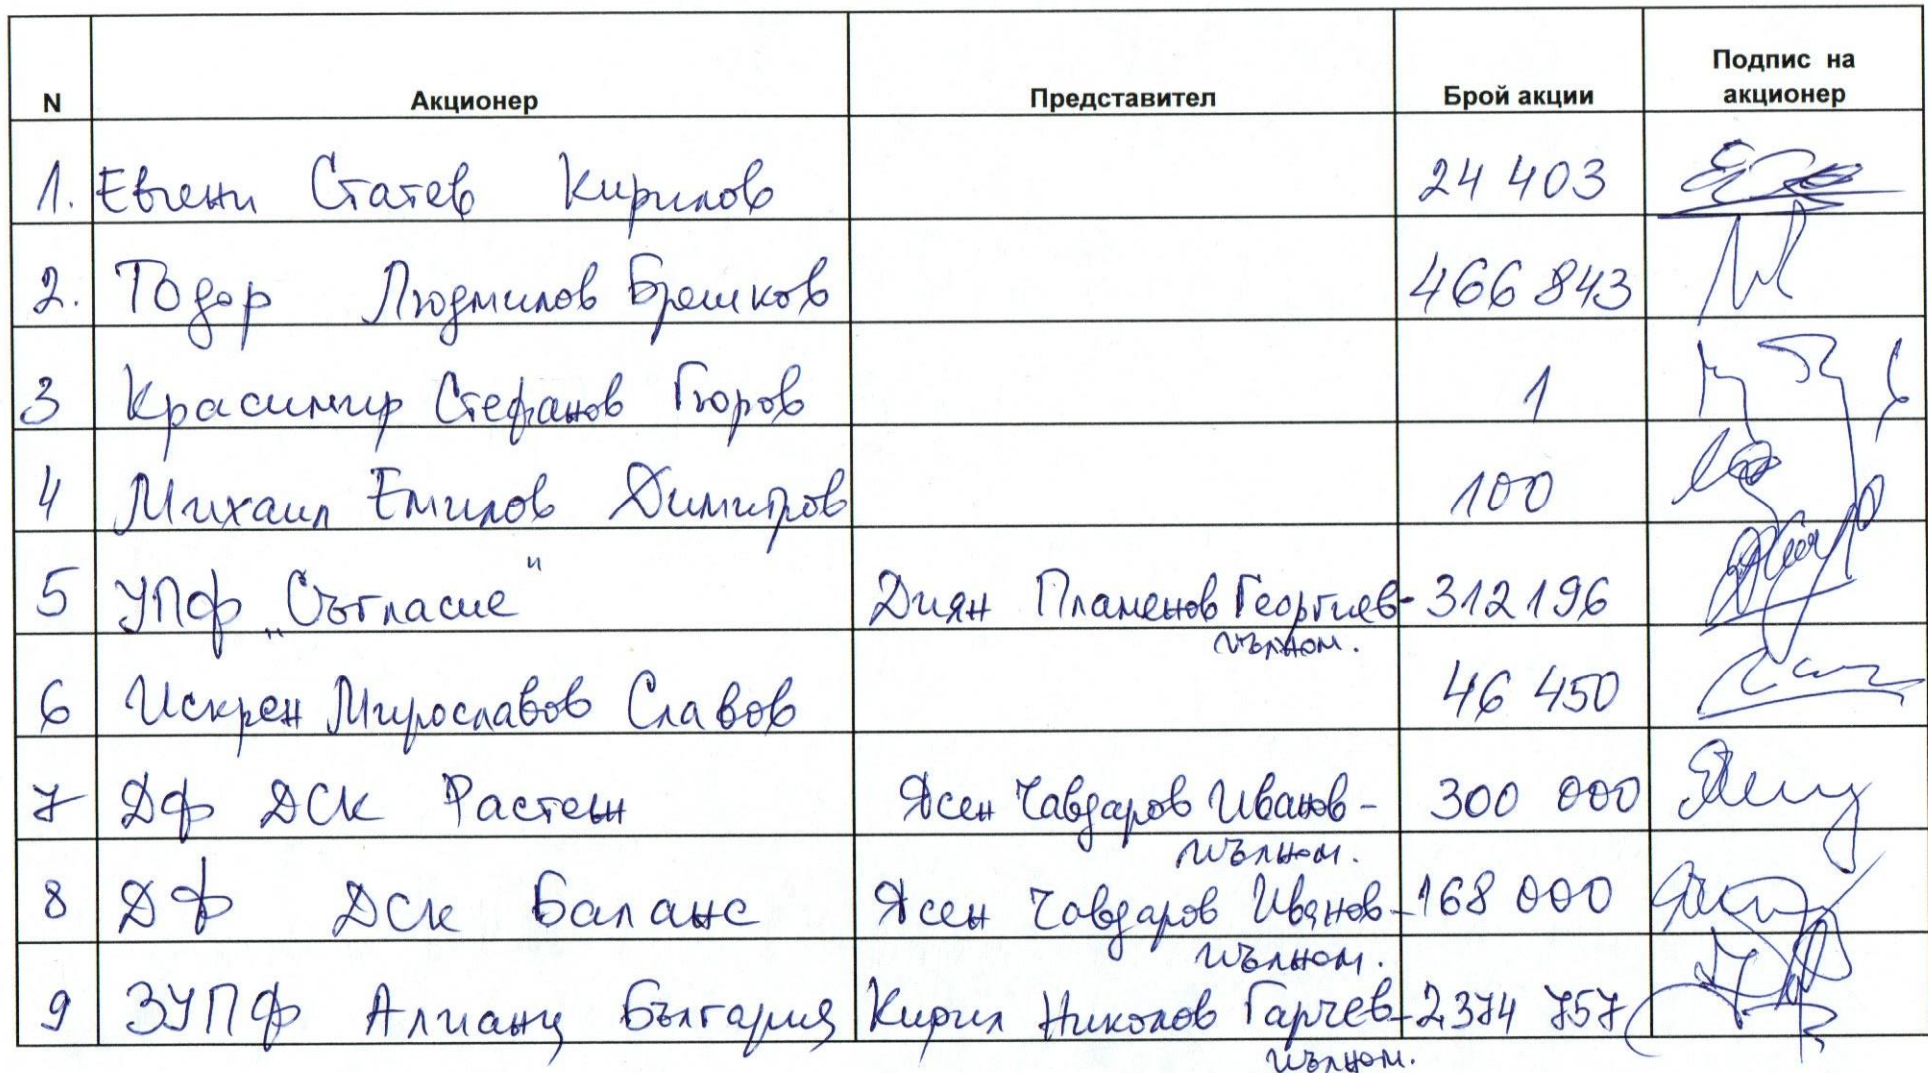 N Акционер Представител Брой акции Подпис на акционер
1. Евгени Статев Кирилов 24 403
2. Тодор Людмилов Брешков 466 843
3 Красимир Стефанов Гюров 1
4 Михаил Емилов Димитров 100
5 УПФ „Съгласие" Диян Пламенов Георгиев- 312 196
пълном.
6 Искрен Мирославов Славов 46 450
7 ДФ ДСК Растеж Ясен Чавдаров Иванов- 300 000
пълном.
8 ДФ ДСК Баланс Ясен Чавдаров Иванов- 168 000
пълном.
9 ЗУПФ Алианц България Кирил Николов Гарчев- 2374 757
пълном.